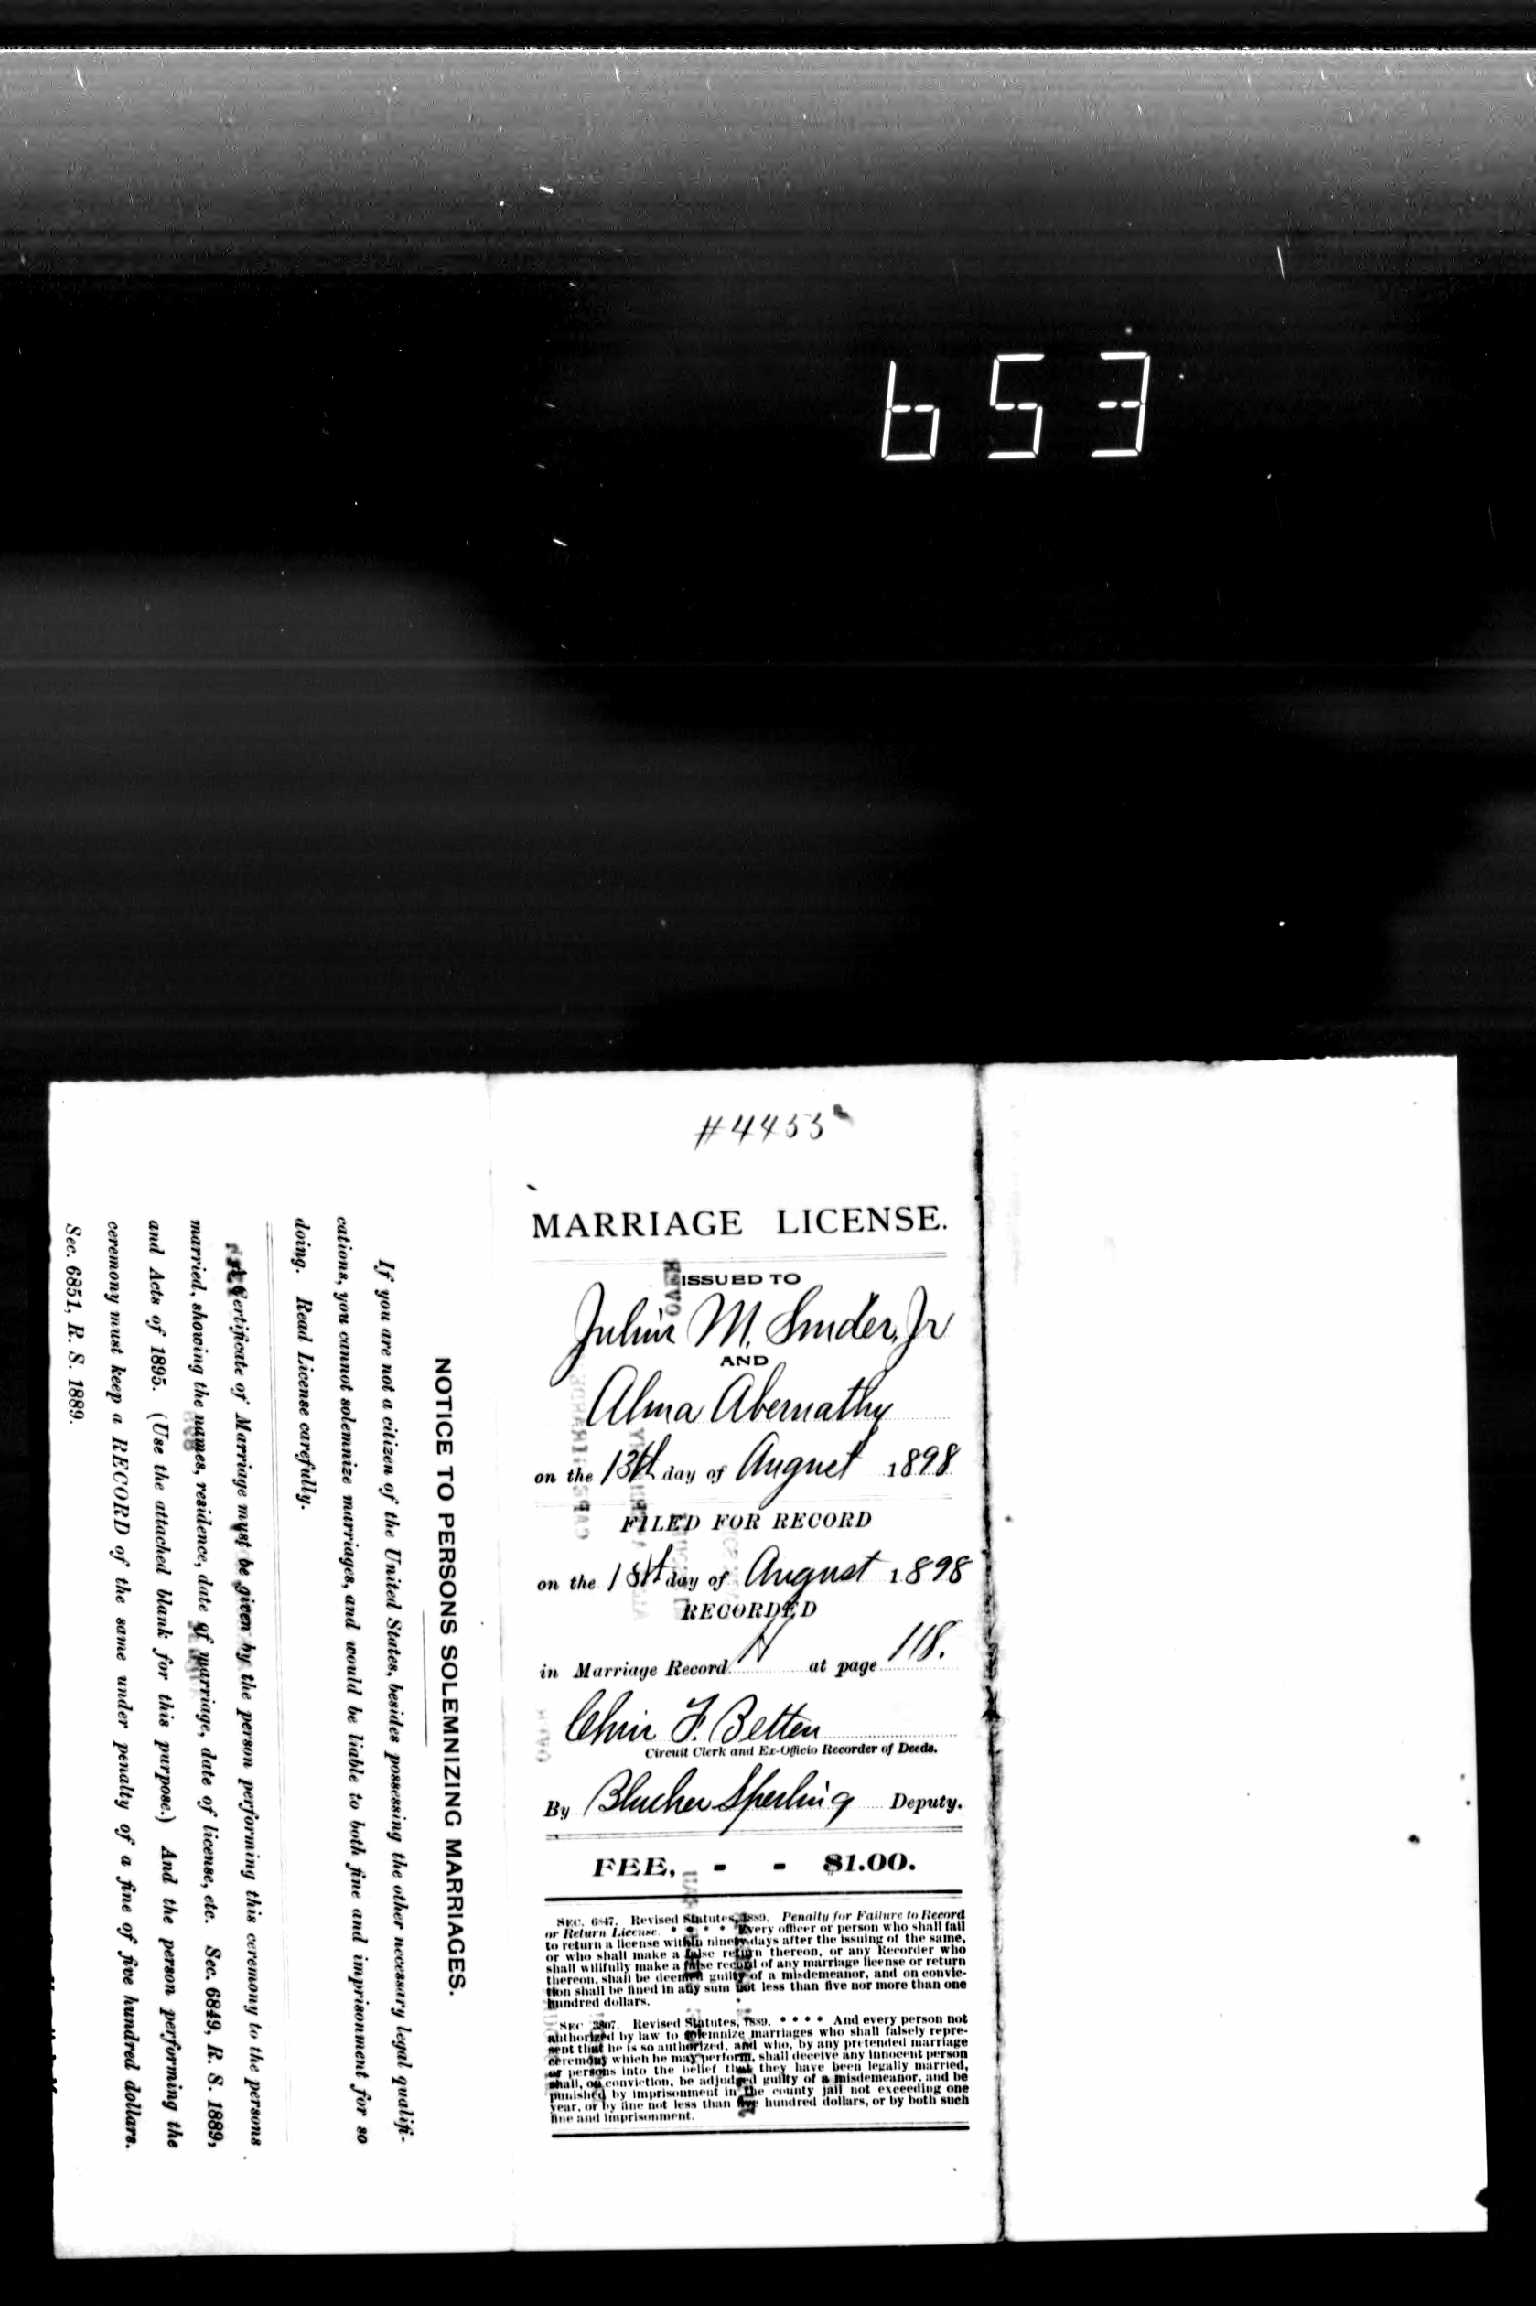 653
#4453
MARRIAGE LICENSE.
ISSUED TO
Julius M. Snider, Jr
AND
Alma Abernathy
on the 13th day of August 1898
FILED FOR RECORD
on the 15th day of August 1898
RECORDED
in Marriage Record H at page 118.
Chris F. Betten
Circuit Clerk and Ex-Officio Recorder of Deeds.
By Blucher Sperling Deputy.
FEE, - - $1.00.
SEC. 6847. Revised Statutes, 1889. Penalty for Failure to Record
or Return License. * * * * Every officer or person who shall fail
to return a license within ninety days after the issuing of the same,
or who shall make a false return thereon, or any Recorder who
shall willfully make a false record of any marriage license or return
thereon, shall be deemed guilty of a misdemeanor, and on convic-
tion shall be fined in any sum not less than five nor more than one
hundred dollars.
SEC 3807. Revised Statutes, 1889. * * * * And every person not
authorized by law to solemnize marriages who shall falsely repre-
sent that he is so authorized, and who, by any pretended marriage
ceremony which he may perform, shall deceive any innocent person
or persons into the belief that they have been legally married,
shall, on conviction, be adjudged guilty of a misdemeanor, and be
punished by imprisonment in the county jail not exceeding one
year, or by fine not less than five hundred dollars, or by both such
fine and imprisonment.
NOTICE TO PERSONS SOLEMNIZING MARRIAGES.
If you are not a citizen of the United States, besides possessing the other necessary legal qualifi-
cations, you cannot solemnize marriages, and would be liable to both fine and imprisonment for so
doing. Read License carefully.
A Certificate of Marriage must be given by the person performing this ceremony to the persons
married, showing the names, residence, date of marriage, date of license, etc. Sec. 6849, R. S. 1889,
and Acts of 1895. (Use the attached blank for this purpose.) And the person performing the
ceremony must keep a RECORD of the same under penalty of a fine of five hundred dollars.
Sec. 6851, R. S. 1889.